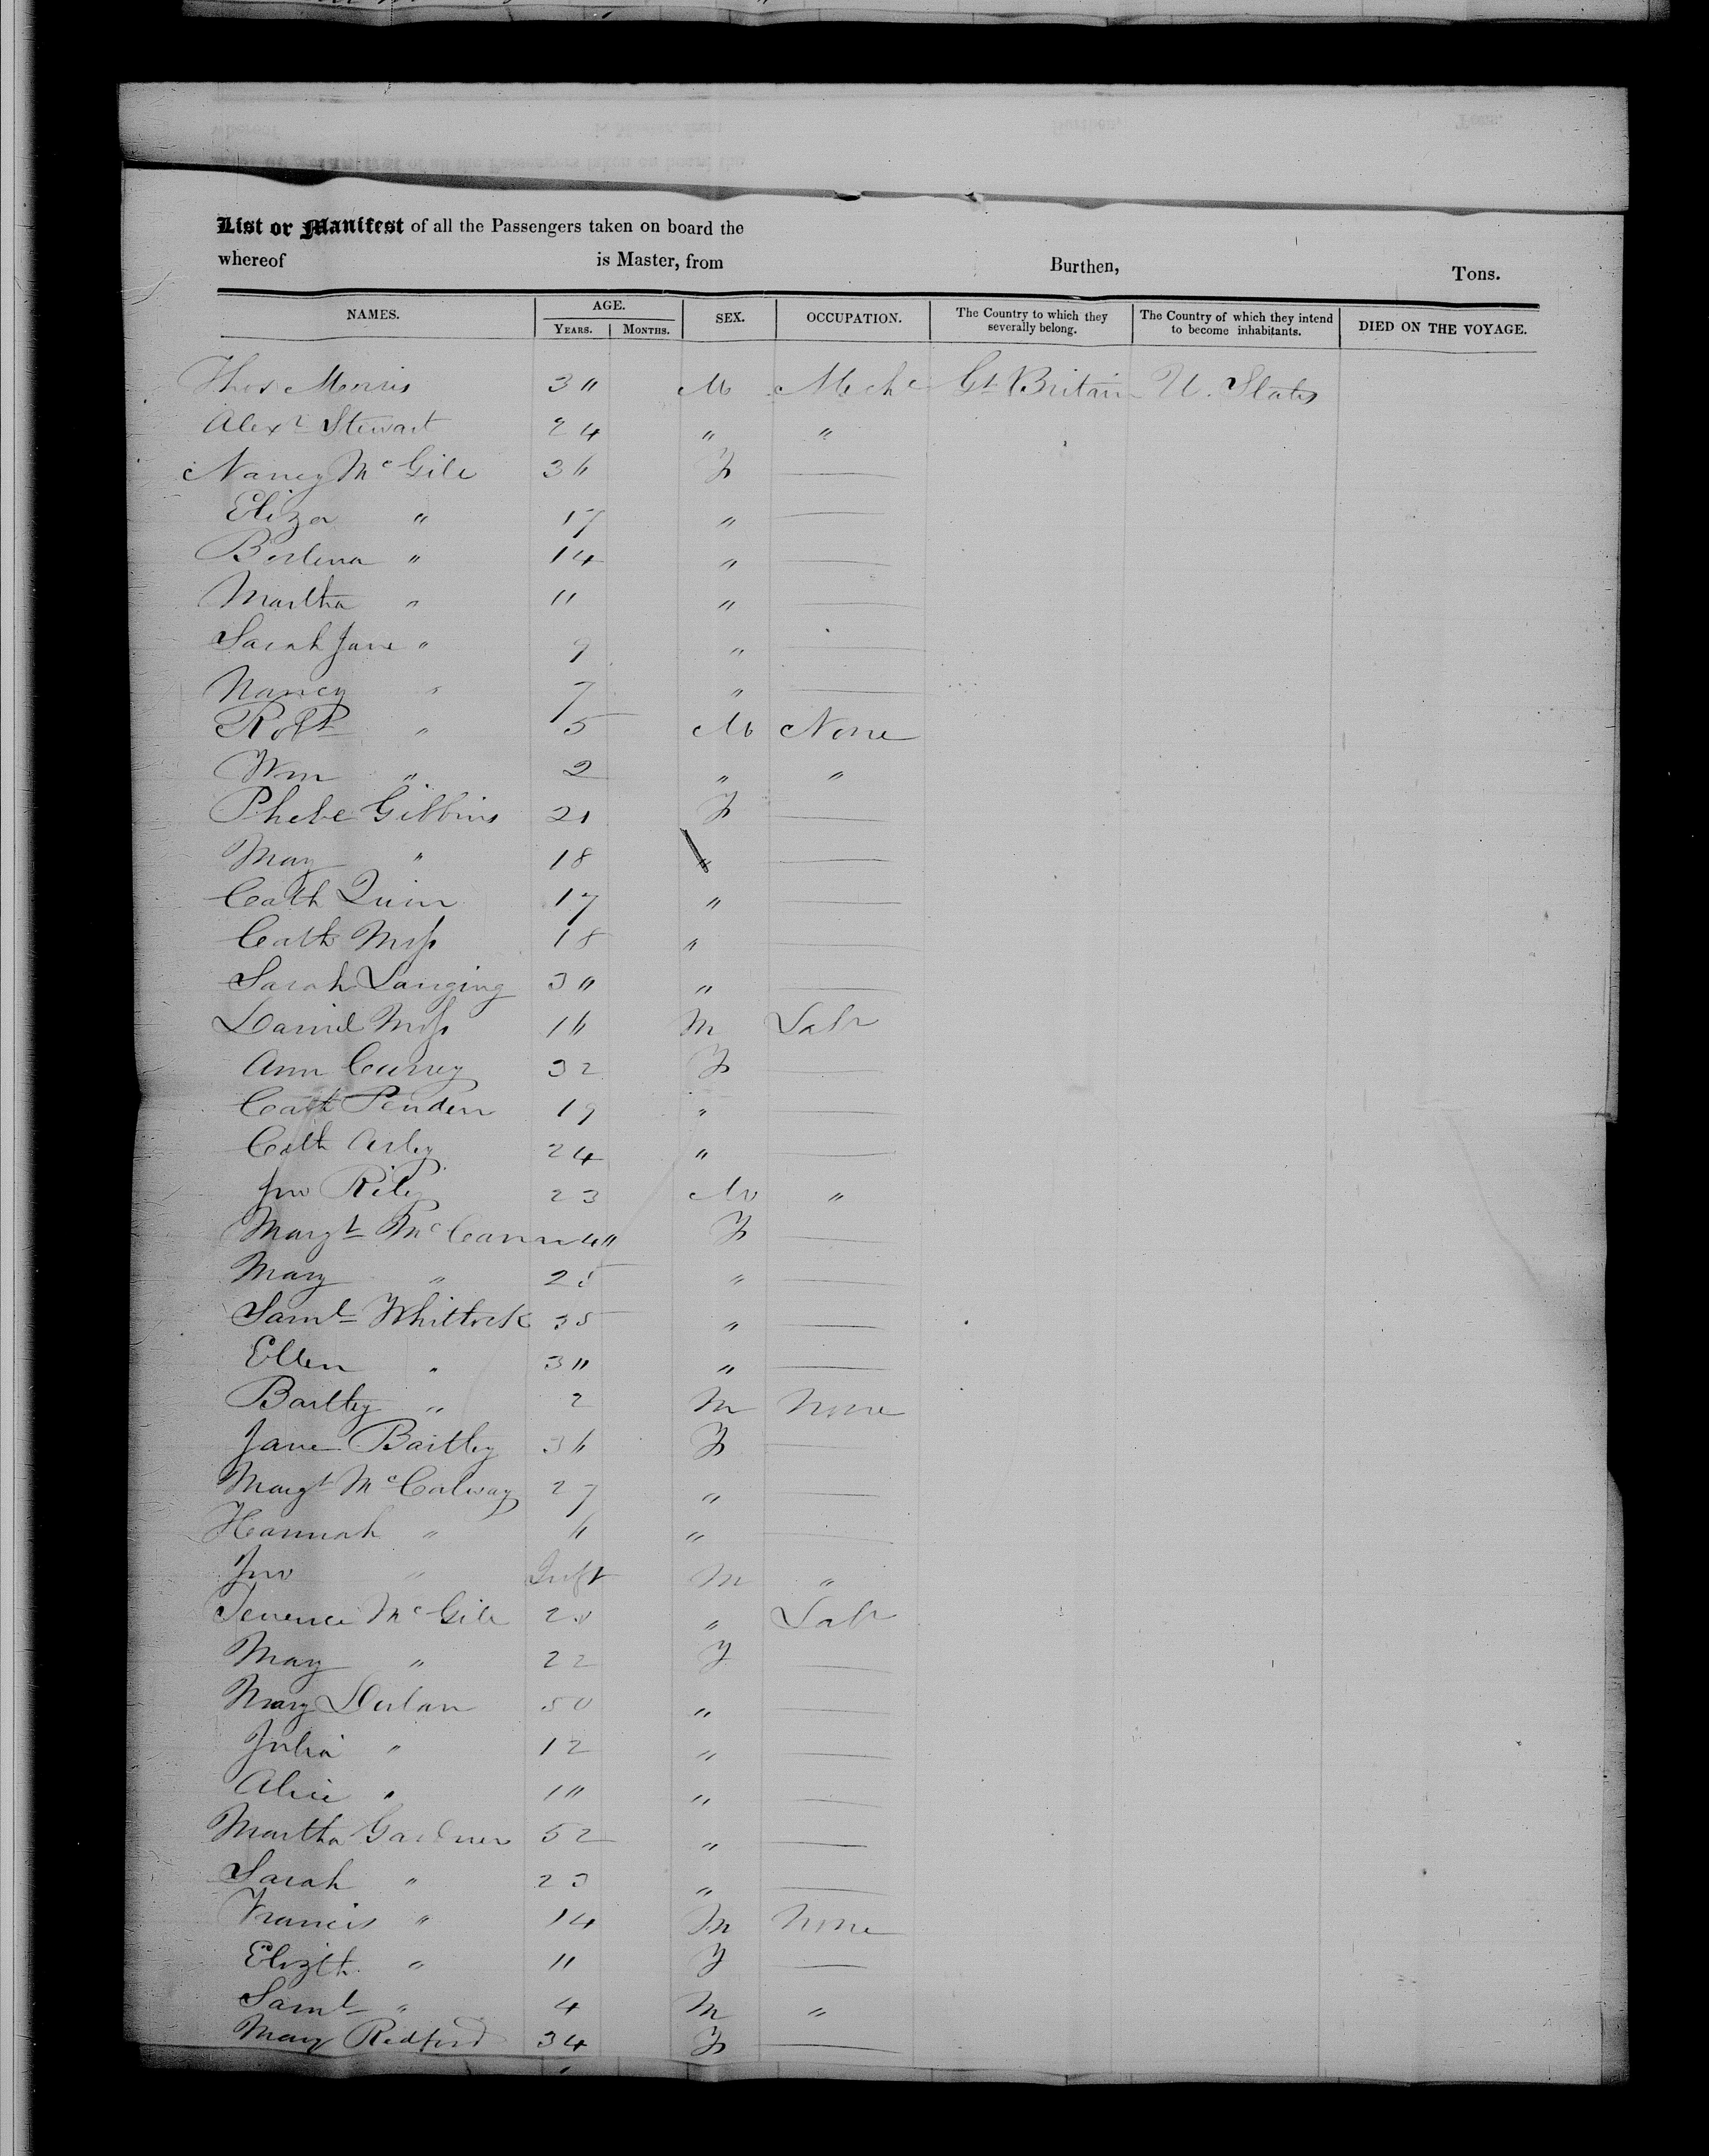 List or Manifest of all the Passengers taken on board the
whereof is Master, from Burthen, Tons.
NAMES. AGE. SEX. OCCUPATION. The Country to which they severally belong. The Country of which they intend to become inhabitants. DIED ON THE VOYAGE.
YEARS. MONTHS.
Thos Morris 30 M Mechc Gt Britain U. States
Alexr Stewart 24 " "
Nancy McGile 36 F —
Eliza " 17 " —
" 14 " —
Martha " 11 " —
Sarah Jane " 9 " —
Nancy " 7 " —
Robt " 5 M None
Wm " 2 " "
Phebe Gibbins 21 F —
Mary " 18 " —
Cath Quinn 17 " —
Cath Moss 18 " —
Sarah Langing 30 " —
Daniel Moss 16 M Labr
Ann Currey 32 F —
Cath Penden 19 " —
Cath 24 " —
Jno Riley 23 M "
Margt McCann 40 F —
Mary " 25 " —
Saml Whittock 35 " —
Ellen " 30 " —
Bartley " 2 M None
Jane Bartley 36 F —
Margt McCalway 27 " —
Hannah " 6 " —
Jno " Inft M "
Terence McGile 20 " Labr
Mary " 22 F —
Mary Dulan 50 " —
Julia " 12 " —
Alice " 10 " —
Martha Gardner 52 " —
Sarah " 23 " —
Francis " 14 M None
Elizth " 11 F —
Saml " 4 M "
Mary Redford 34 F —